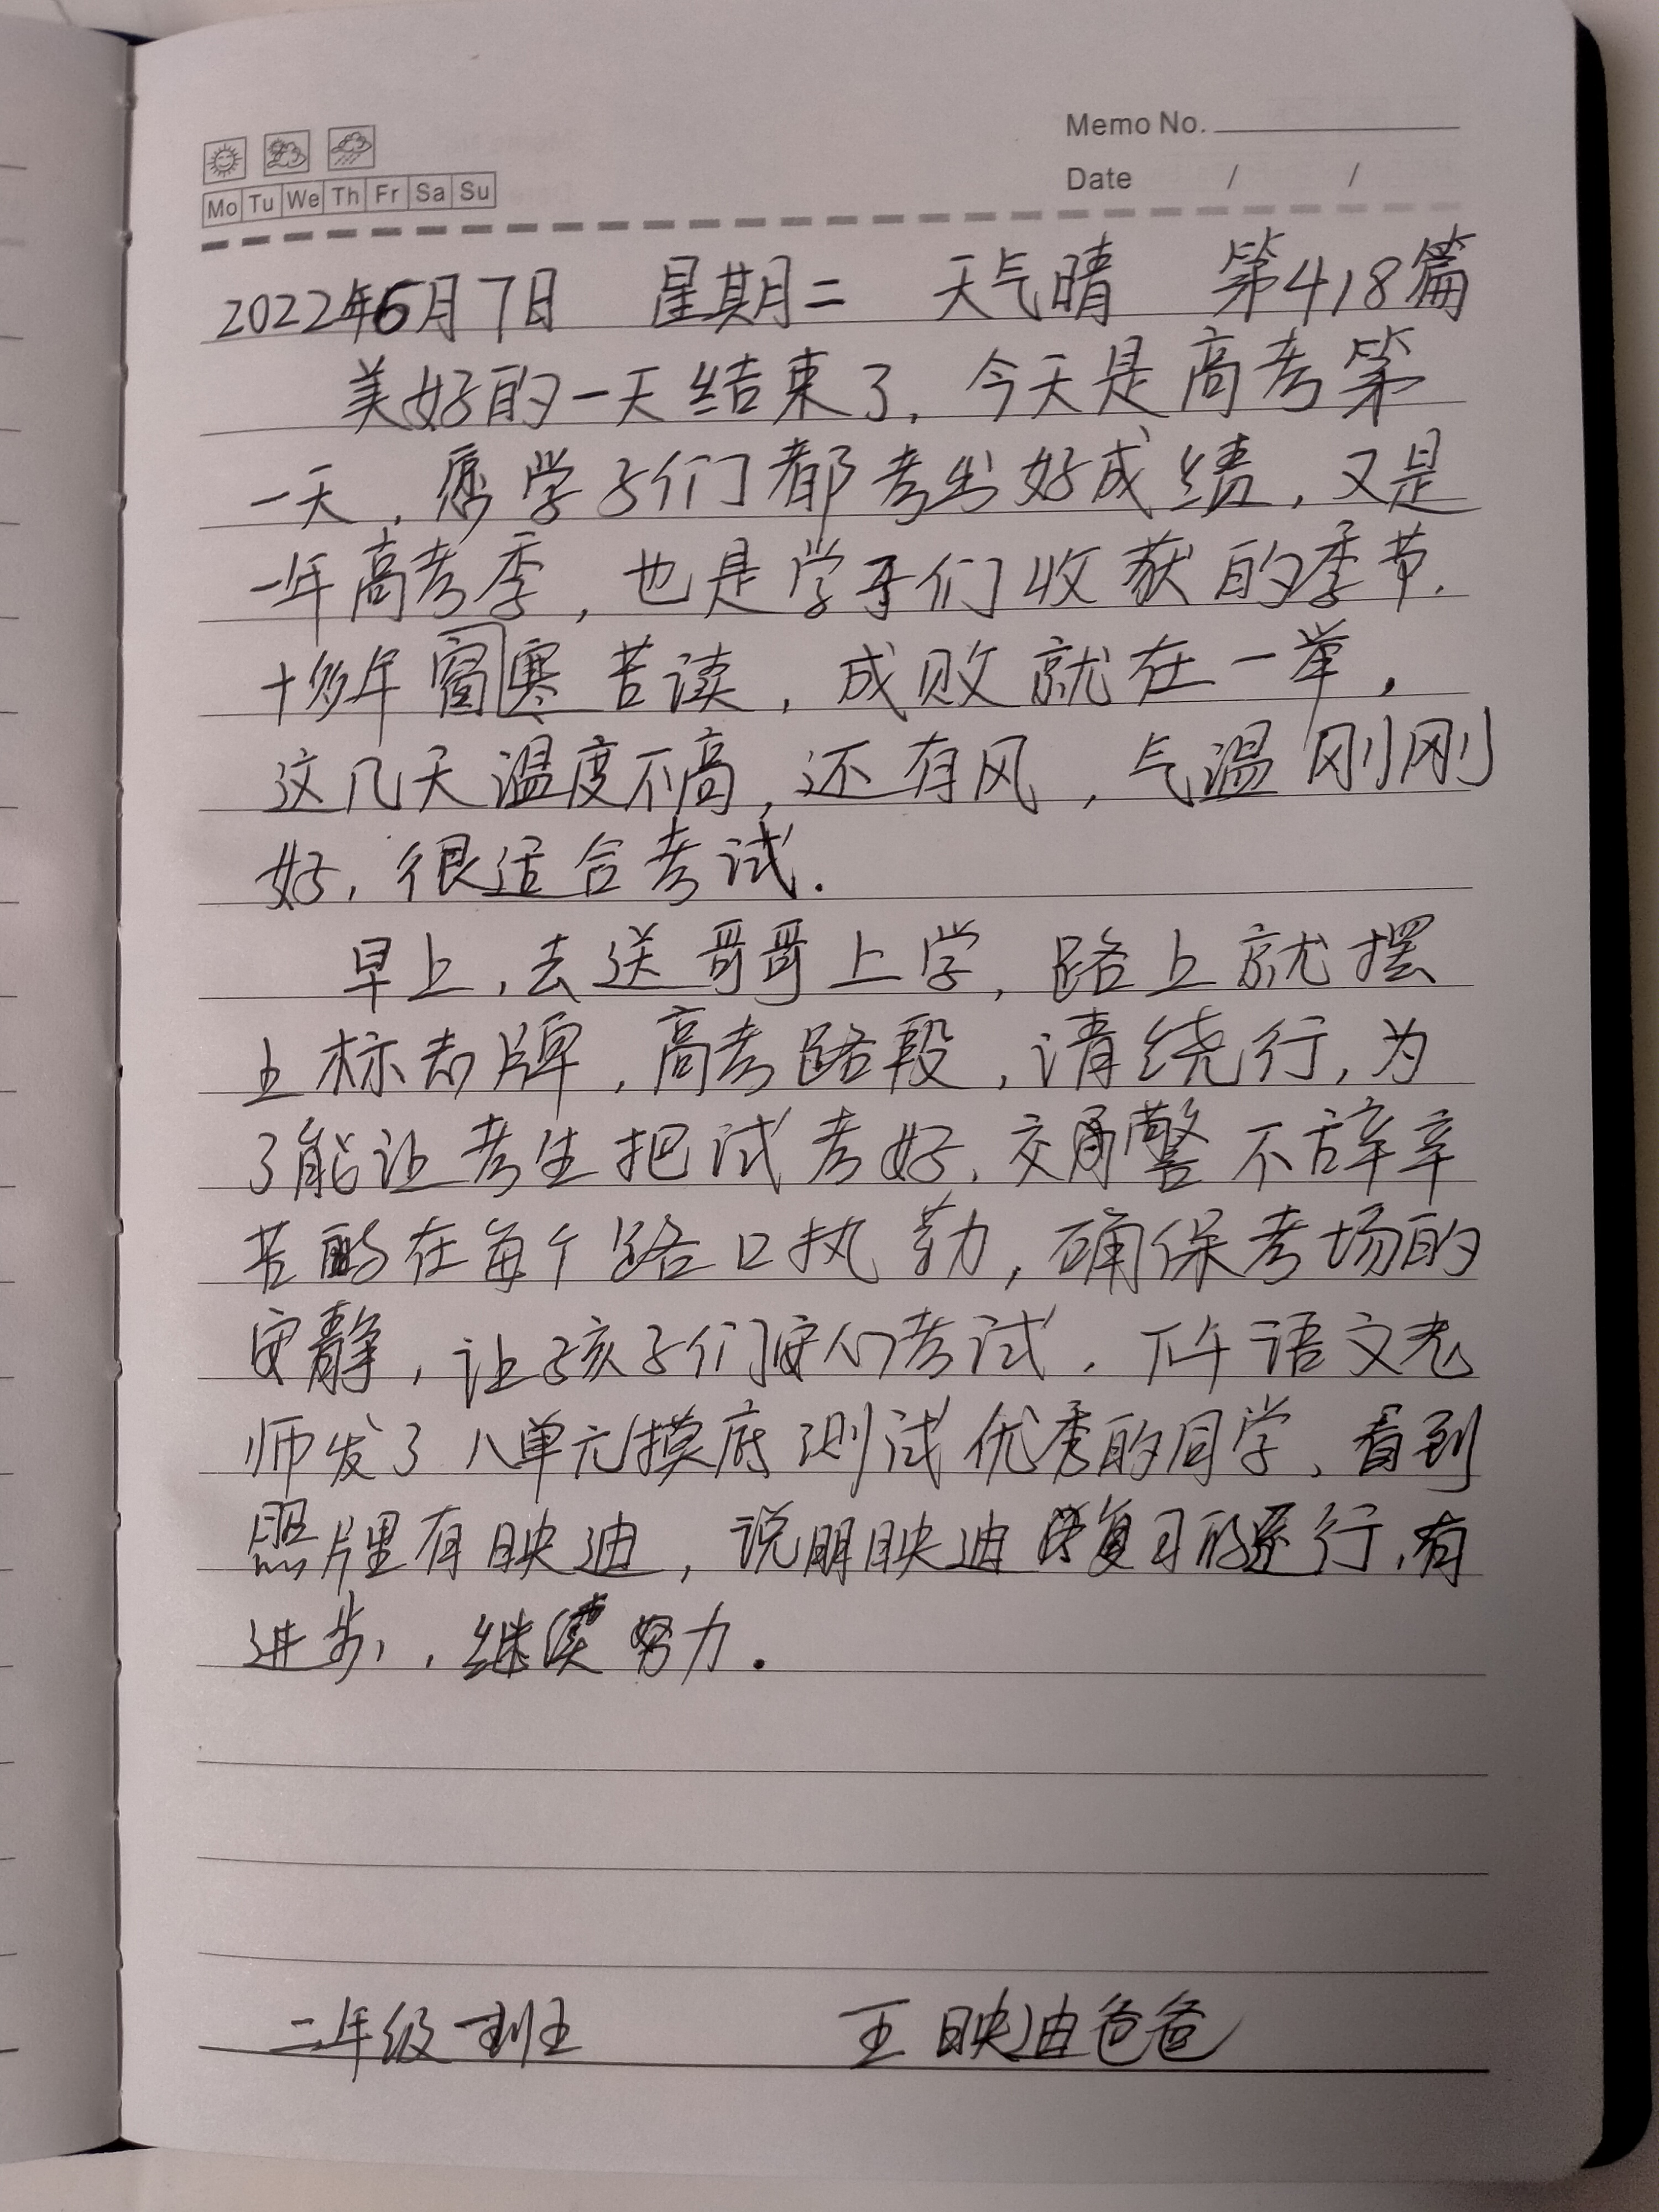 Memo No.
Mo Tu We Th Fr Sa Su
Date / /
2022年6月7日 星期二 天气晴 第418篇
美好的一天结束了,今天是高考第
一天,愿学子们都考出好成绩,又是
一年高考季,也是学子们收获的季节.
十多年窗寒苦读,成败就在一举,
这几天温度不高,还有风,气温刚刚
好,很适合考试.
早上,去送哥哥上学,路上就摆
上标志牌,高考路段,请绕行,为
了能让考生把试考好,交通警不辞辛
苦的在每个路口执勤,确保考场的
安静,让孩子们安心考试.下午语文老
师发了八单元摸底测试优秀的同学,看到
照片里有映迪,说明映迪复习的还行,有
进步,,继续努力.
二年级一班 王映迪爸爸